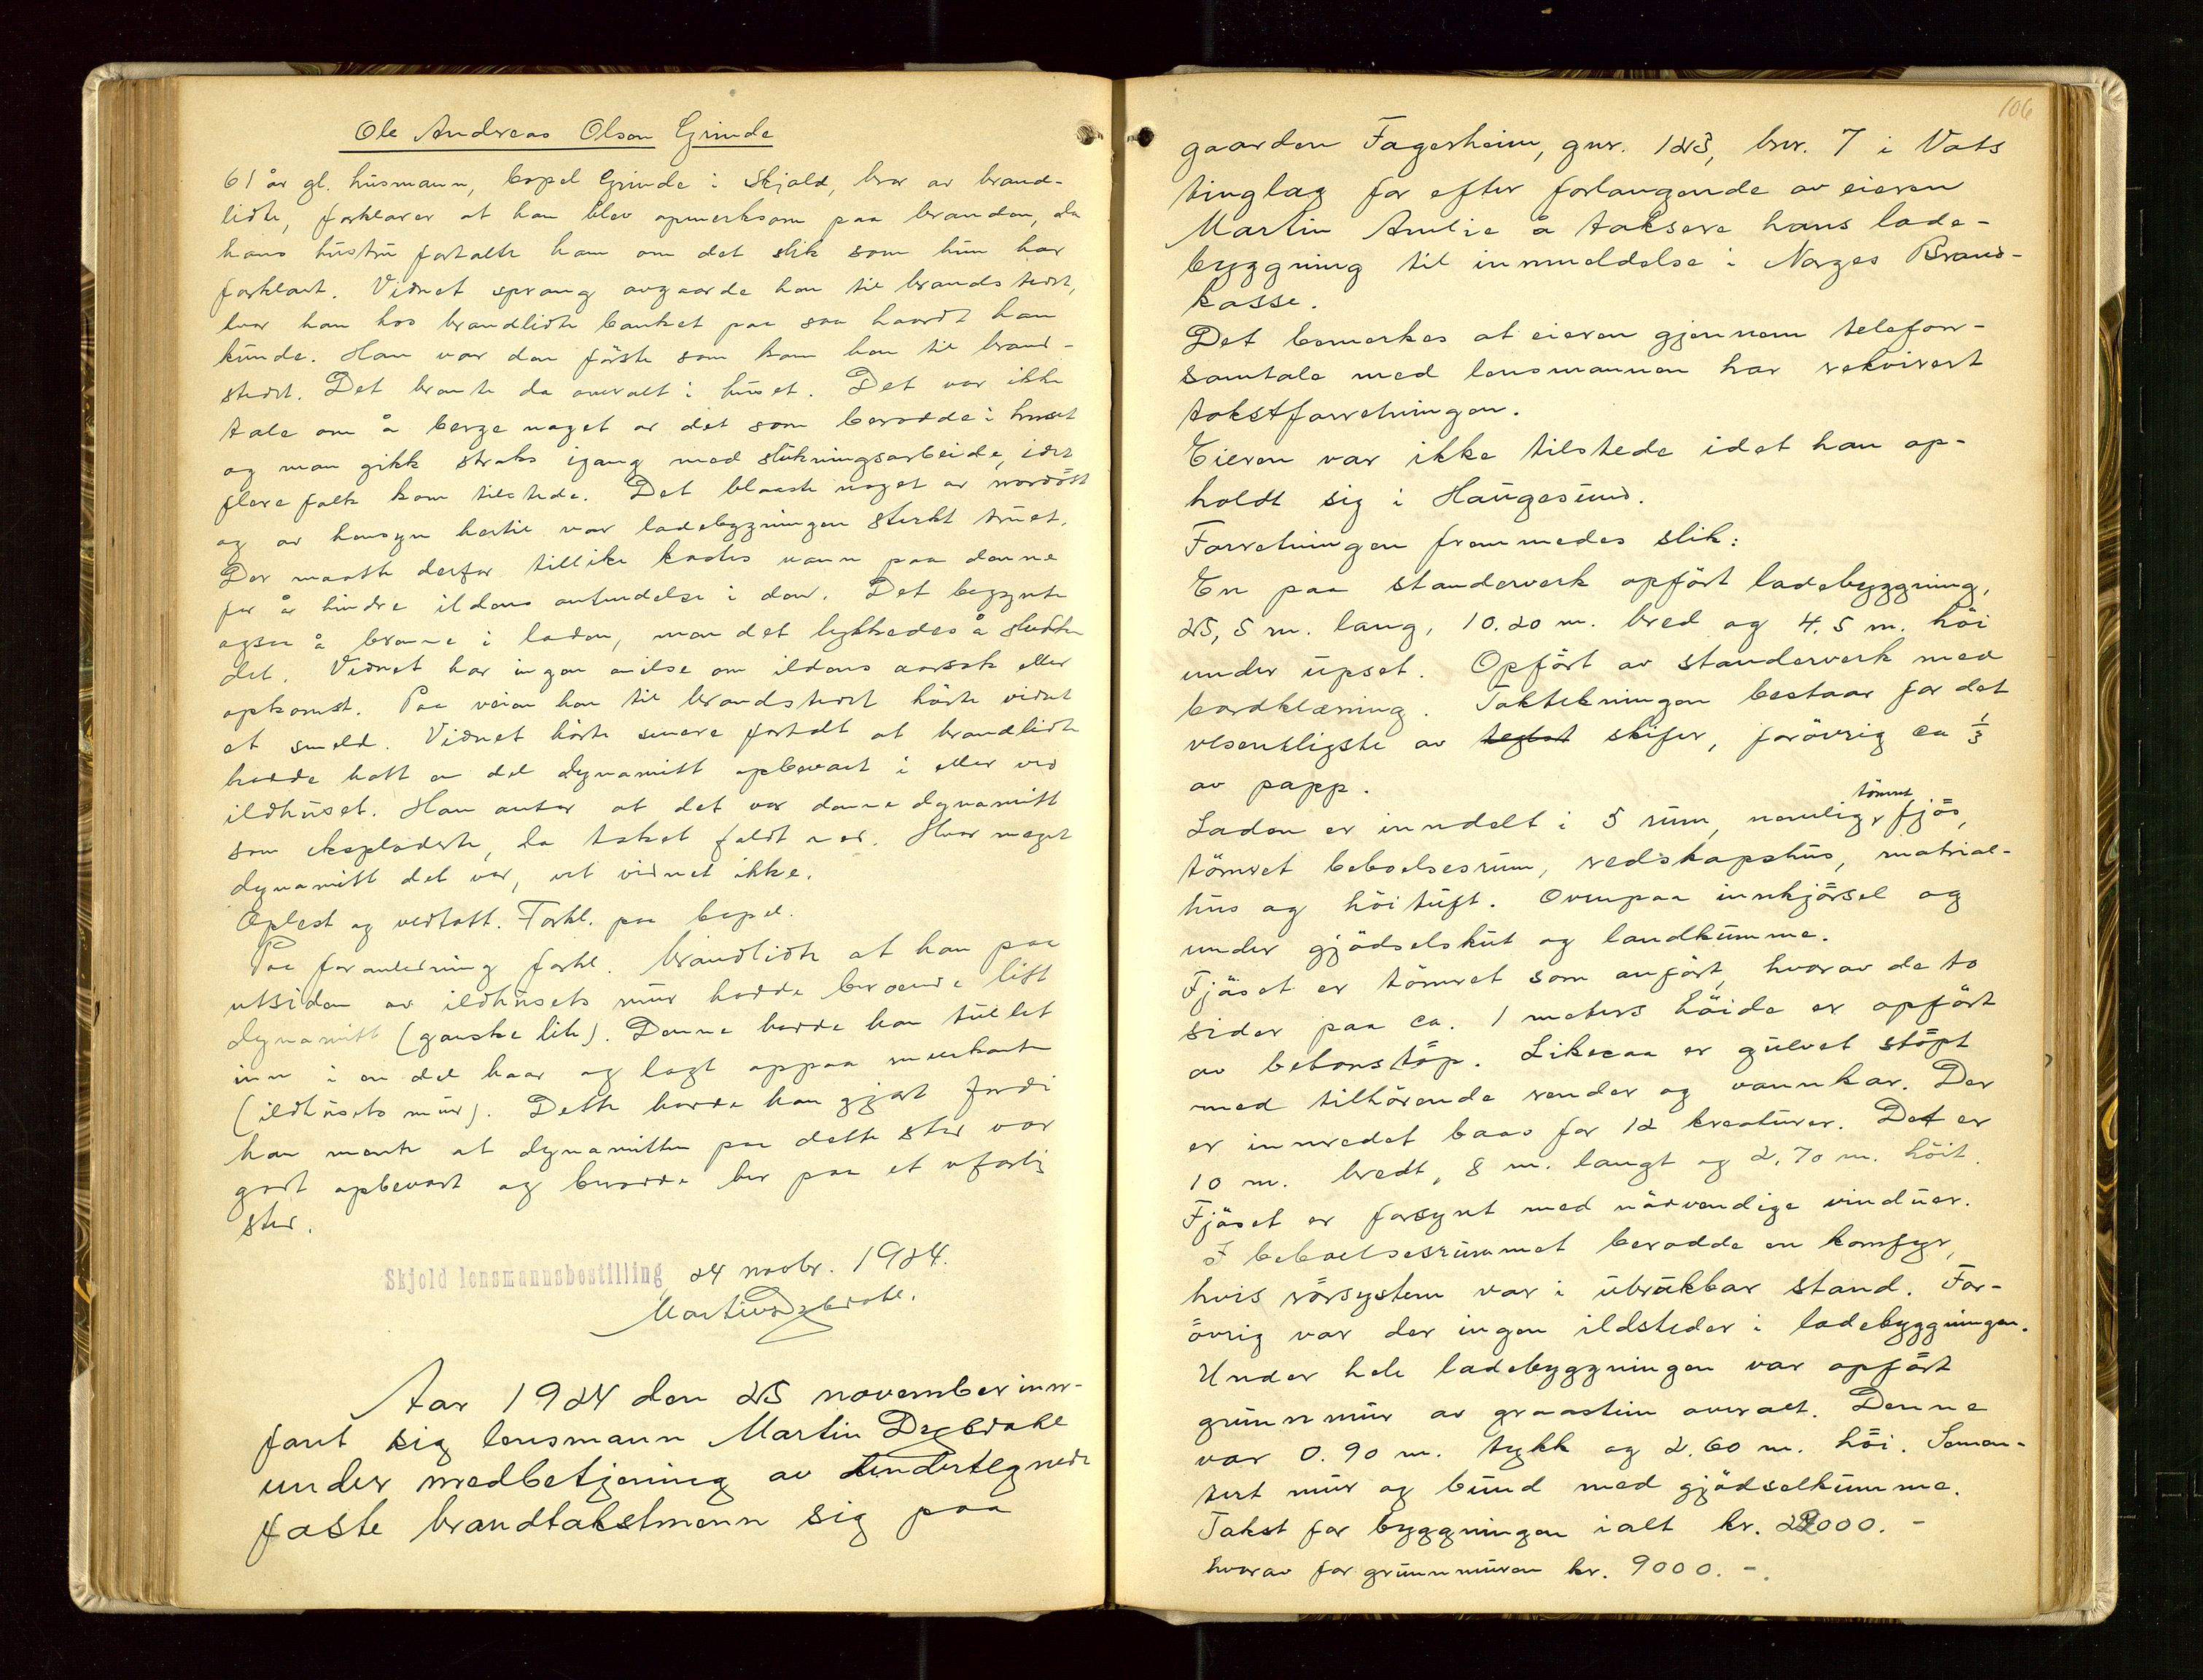 Ole Andreas Olson Grinde
61 år gl. husmann, bopel Grinde i Skjold, bror av brand-
lidte, forklarer at han blev opmerksom paa branden, da
hans hustru fortalte ham om det slik som hun har
forklart. Vidnet sprang avgaarde hen til brandstedet,
hvor han hos brandlidte banket paa saa haardt han
kunde. Han var den förste som kom hen til brand-
stedet. Det brante da overalt i huset. Det var ikke
tale om å berge noget av det som berodde i huset
og man gikk straks igang med slukningsarbeide, idet
flere folk kom tilstede. Det blaaste noget av nordöst
og av hensyn hertil var ladebygningen sterkt truet.
Der maatte derfor tillike kastes vann paa denne
for å hindre ildens antendelse i den. Det begynte
ogsaa å brenne i laden, men det lykkedes å slukke
det. Vidnet har ingen anelse om ildens aarsak eller
opkomst. Paa veien hen til brandstedet hörte vidnet
et smeld. Vidnet hörte senere fortalt at brandlidte
hadde hatt en del dynamitt opbevart i eller ved
ildhuset. Han antar at det var denne dynamitt
som eksploderte, da taket faldt ned. Hvor meget
dynamitt det var, vet vidnet ikke.
Oplest og vedtatt. Forkl. paa bopel.
Paa foranledning forkl. brandlidte at han paa
utsiden av ildhusets mur hadde beroende litt
dynamitt (ganske lite). Denne hadde han tullet
inn i en del haar og lagt oppaa murkanten
(ildhusets mur). Dette hadde han gjort fordi
han mente at dynamitten paa dette sted var
godt opbevart og berodde her paa et ufarlig
sted.
Skjold lensmannsbestilling, 24 novbr. 1924.
Martin Dybdahl.
Aar 1924 den 25 november inn-
fant sig lensmann Martin Dybdahl
under medbetjening av undertegnede
faste brandtakstmenn sig paa
106
gaarden Fagerheim, gnr. 123, bnr. 7 i Vats
tinglag for efter forlangende av eieren
Martin Amlie å taksere hans lade-
byggning til innmeldelse i Norges Brand-
kasse.
Det bemerkes at eieren gjennem telefon-
samtale med lensmannen har rekvirert
takstforretningen.
Eieren var ikke tilstede idet han op-
holdt sig i Haugesund.
Forretningen fremmedes slik:
En paa standerverk opfört ladebyggning,
25,5 m. lang, 10.20 m. bred og 4.5 m. höi
under upset. Opfört av standerverk med
bordklæning. Taktekningen bestaar for det
vesentligste av teglst skifer, forövrig ca 1/3
av papp.
Laden er inndelt i 5 rum, nemlig, tömret fjös,
tömret beboelsesrum, redskapshus, matrial-
hus og höituft. Ovenpaa innkjörsel og
under gjödselskut og landkumme.
Fjöset er tömret som anfört, hvorav de to
sider paa ca. 1 meters höide er opfört
av betonstöp. Likesaa er gulvet stöpt
med tilhörende render og vannkar. Der
er innredet baas for 12 kreaturer. Det er
10 m. bredt, 8 m. langt og 2,70 m. höit.
Fjöset er forsynt med nödvendige vinduer.
I beboelsesrummet berodde en komfyr,
hvis rörsystem var i ubrukbar stand. For-
övrig var der ingen ildsteder i ladebyggningen.
Under hele ladebyggningen var opfört
grunnmur av graasten overalt. Denne
var 0.90 m. tykk og 2.60 m. höi. Semen-
tert mur og bund med gjödselkumme.
Takst for byggningen ialt kr. 29000.-
hvorav for grunnmuren kr. 9000.-.